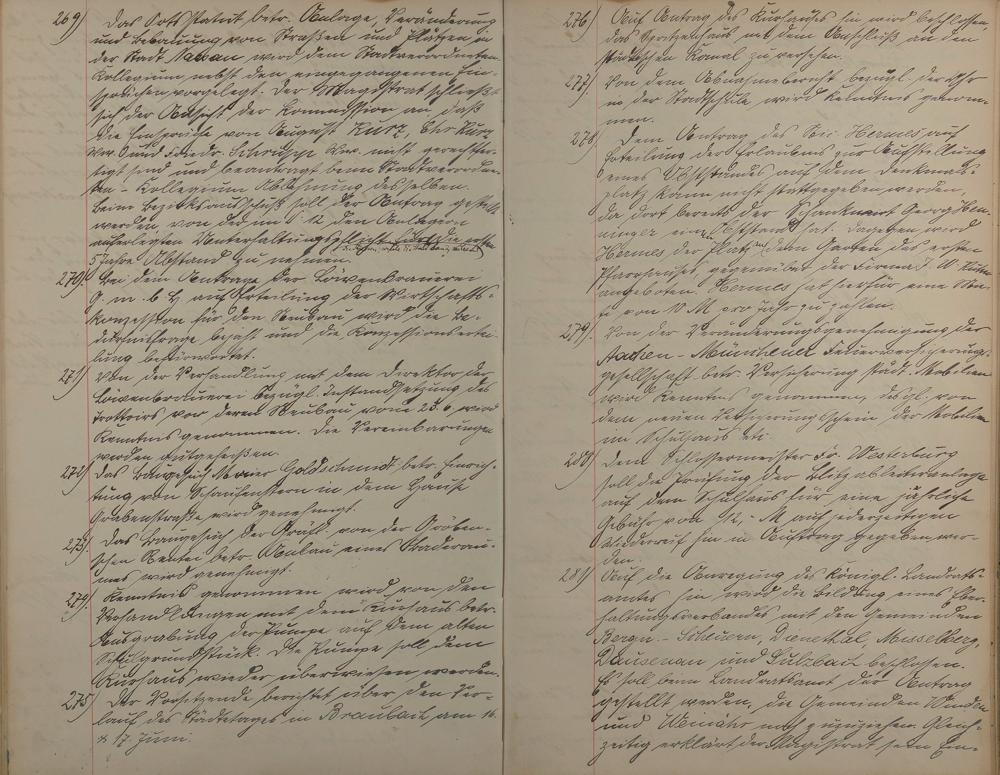 269) Das Ortsstatut betr. Anlage, Veränderung
und Bebauung von Straßen und Plätzen in
der Stadt Nassau wird dem Stadtverordneten-
Kollegium nebst den eingegangenen Ein-
sprüchen vorgelegt. Der Magistrat schließt
sich der Ansicht der Kommission an, daß
die Einsprüche von August Kurz, Chr. Kurz
und Friedr. Schrupp Wwe. nicht gerechtfer-
tigt sind und beantragt beim Stadtverordne-
ten-Kollegium Ablehnung desselben.
Beim Bezirksausschuß soll der Antrag gestellt
werden, von der im § 12 den Anliegern
auferlegten Unterhaltungspflicht
5 Jahre Abstand zu nehmen.
270) Bei dem Antrage der Löwenbrauerei
G. m. b. H. auf Erteilung der Wirtschafts-
konzession für den Neubau wird die Be-
dürfnisfrage bejaht und die Konzessionsertei-
lung befürwortet.
271) Von der Verhandlung mit dem Direktor der
Löwenbrauerei bezügl. Instandsetzung des
Trottoirs vor deren Neubau vom 23. 6. wird
Kenntnis genommen. Die Vereinbarungen
werden gutgeheißen.
272) Das Baugesuch Maier Goldschmidt betr. Einrich-
tung von Schaufenstern in dem Hause
Grabenstraße wird genehmigt.
273) Das Baugesuch der Gräfl. von der Gröben-
schen Rentei betr. Anbau eines Baderau-
mes wird genehmigt.
274) Kenntnis genommen wird von den
Verhandlungen mit dem Kurhaus betr.
Ausgrabung der Pumpe auf dem alten
Schulgrundstück. Die Pumpe soll dem
Kurhaus wieder überwiesen werden.
275) Der Vorsitzende berichtet über den Ver-
lauf des Städtetages in Braubach am 16.
& 17 Juni.
276) Auf Antrag des Kurhauses hin wird beschlossen,
das Spritzenhaus mit dem Anschluß an den
städtischen Kanal zu versehen.
277) Von dem Abnahmebericht bezügl. der Uhr
in der Stadtschule wird Kenntnis genom-
men.
278) Dem Antrag des Hermes auf
Erteilung der Erlaubnis zur Aufstellung
eines Obststandes auf dem Denkmals-
platz kann nicht stattgegeben werden,
da dort bereits der Schankwirt Georg Hen-
ninger einen Obststand hat. Dagegen wird
Hermes der Platz an dem Garten des ersten
Pfarrhauses, gegenüber der Firma J. W. Kuhn
angeboten. Hermes hat hierfür eine Mie-
te von 10 M pro Jahr zu zahlen.
279) Von der Veränderungsgenehmigung der
Aachen-Münchener Feuerversicherungs-
gesellschaft betr. Versicherung städt. Mobilien
wird Kenntnis genommen, desgl. von
dem neuen Versicherungsschein der Mobilien
im Schulhaus etc.
280) Dem Schlossermeister Fr. Westerburg
soll die Prüfung der Blitzableiteranlage
auf dem Schulhaus für eine jährliche
Gebühr von 12,- M auf jederzeitigen
Widerruf hin in Auftrag gegeben wer-
den.
281) Auf die Anregung des Königl. Landrats-
amtes hin, wird die Bildung eines Eber-
haltungsverbandes mit den Gemeinden
Bergn.-Scheuern, Dienethal, Misselberg,
Dausenau und Sulzbach beschlossen.
Es soll beim Landratsamt der Antrag
gestellt werden, die Gemeinden Winden
und Weinähr noch zuzuziehen. Gleich-
zeitig erklärt der Magistrat sein Ein-